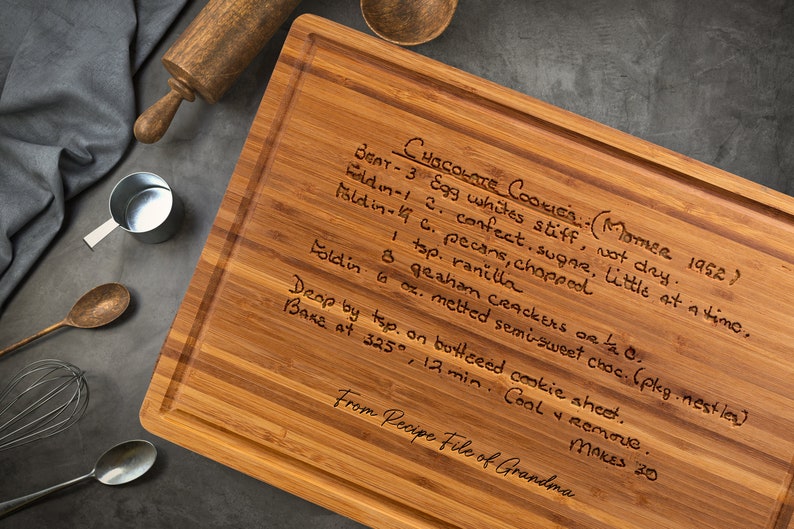 Chocolate Cookies. (Mother 1952)
Beat - 3 Egg whites stiff, not dry.
Fold in - 1 c. confect. sugar, little at a time.
Fold in - ¼ c. pecans, chopped
1 tsp. vanilla
8 graham crackers or ½ c.
Fold in. 6 oz. melted semi-sweet choc. (pkg. nestles)
Drop by tsp. on buttered cookie sheet.
Bake at 325°, 12 min. Cool & remove.
Makes 30
From Recipe File of Grandma